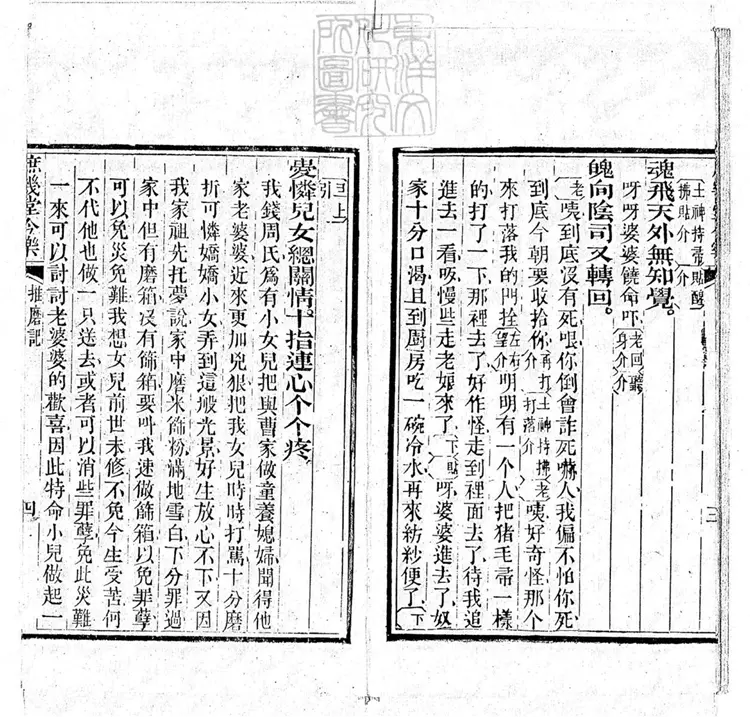 東洋文
化研究
所圖書
三
土神持壺貼酸
拂貼介 介
魂飛天外無知覺。
呀呀婆婆饒命吓 老回聽身介介
魄向陰司又轉回。
老 咦到底沒有死哏你倒會詐死嚇人我偏不怕你死
到底今朝要收拾你 再打介土神持拂打落介 老 咦好奇怪那个
來打落我的門拴 左右望介 明明有一个人把猪毛帚一樣
的打了一下那裡去了好作怪走到裡面去了待我追
進去一看慢些走老娘來了 下 貼 呀婆婆進去了奴
家十分口渴且到厨房吃一碗冷水再來紡紗便了 下
旦上
引
愛憐兒女總關情。十指連心个个疼
我錢周氏爲有小女兒把與曹家做童養媳婦聞得他
家老婆婆近來更加兇狠把我女兒時時打罵十分磨
折可憐嬌嬌小女弄到這般光景好生放心不下又因
我家祖先托夢說家中磨米篩粉滿地雪白下分罪過
家中但有磨箱沒有篩箱要呌我速做篩箱以免罪孽
可以免災免難我想女兒前世未修不免今生受苦何
不代他也做一只送去或者可以消些罪孽免此災難
一來可以討討老婆婆的歡喜因此特命小兒做起一
庶幾堂今樂 推磨記 四